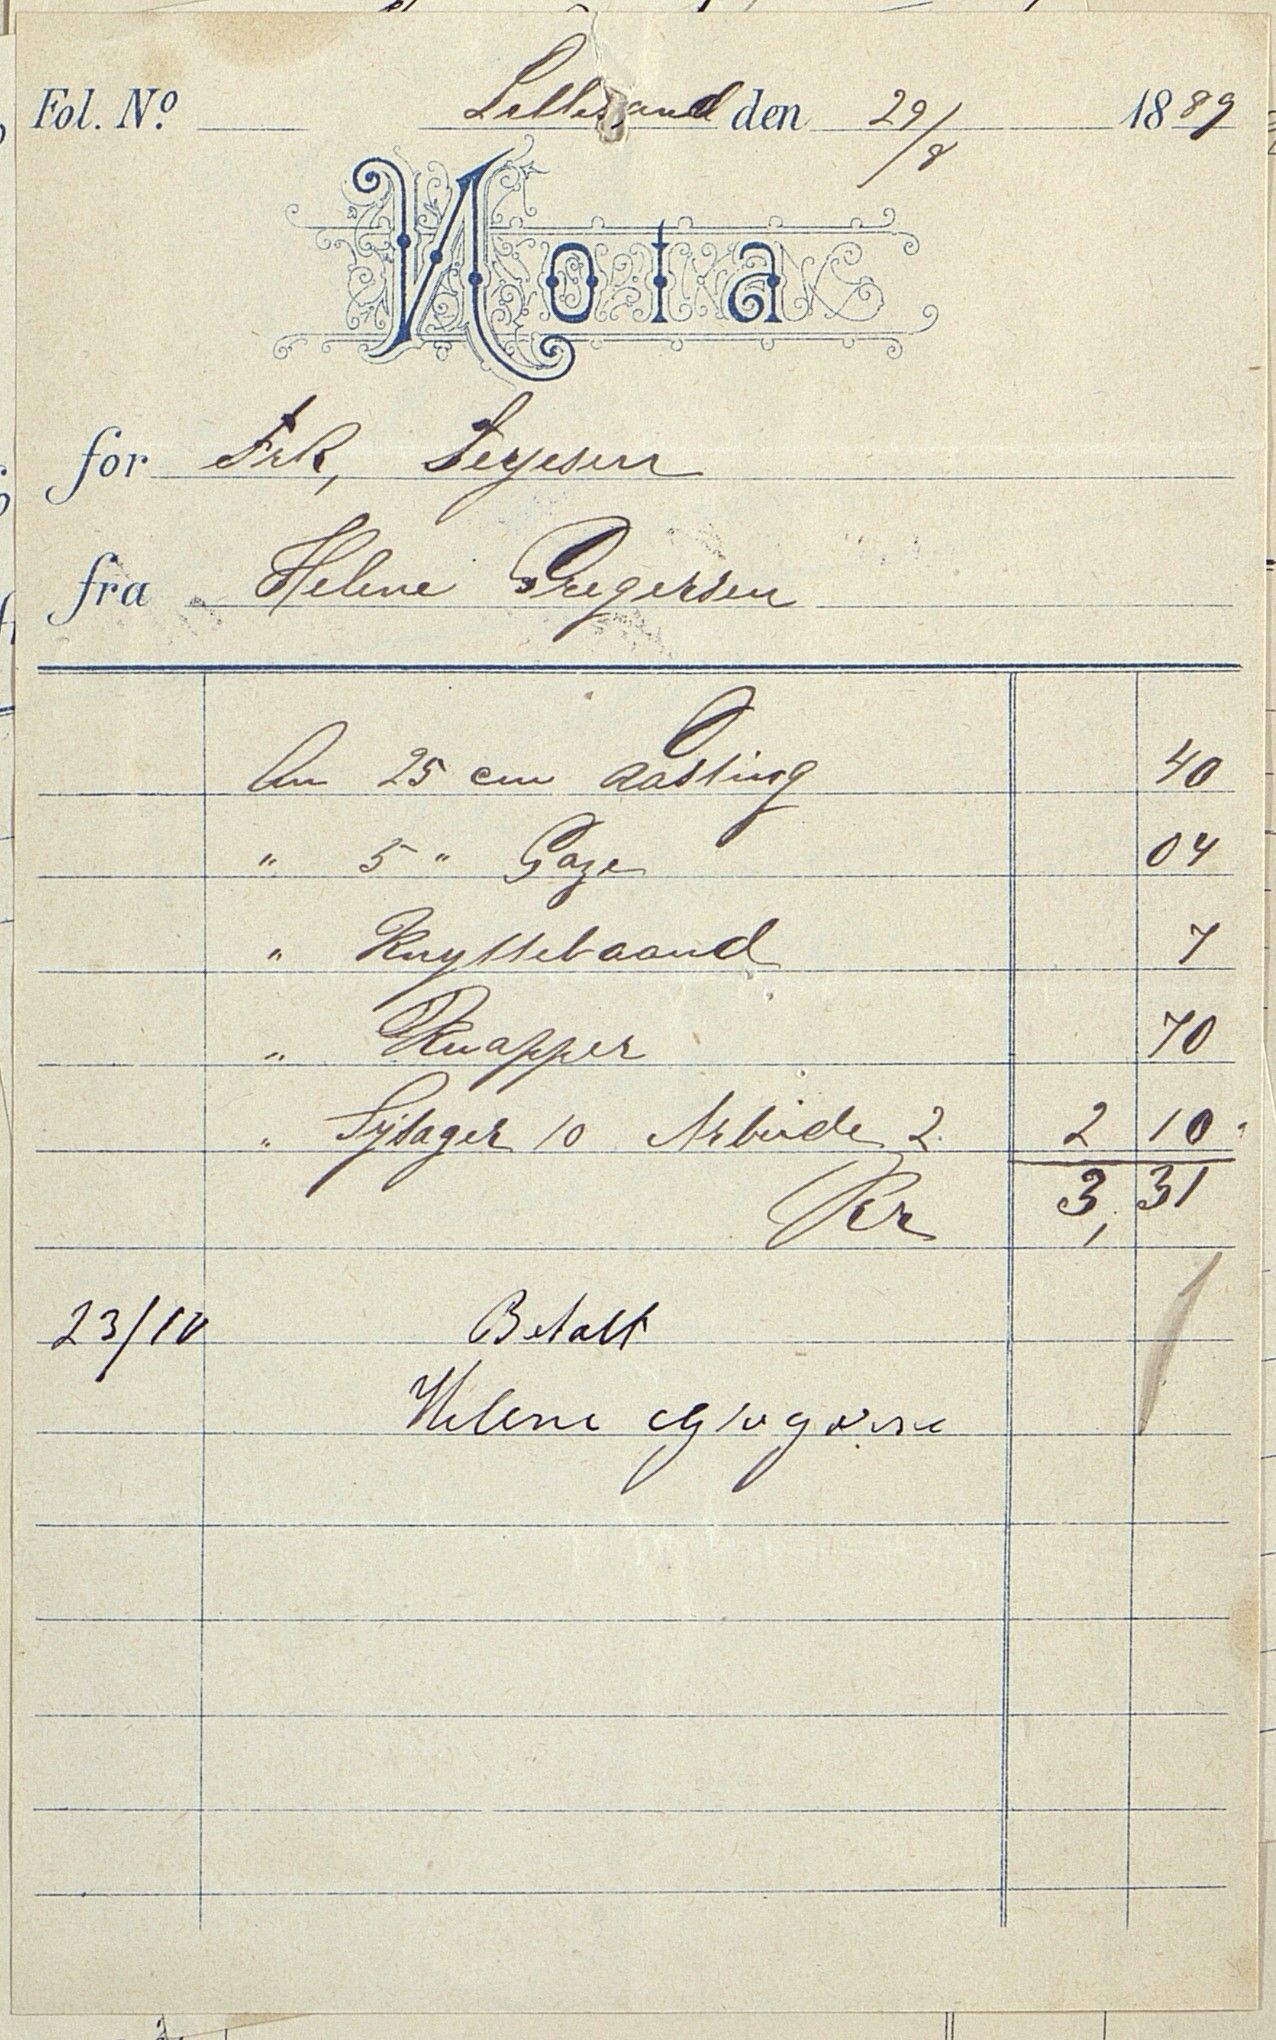 Fol. No. Lillesand den 29/8 1889
Nota
for Frk,
fra Helene Gregersen
An 25 cm 40
" 5 " Gaze 04
" Knyttebaand 7
" Knapper 70
" Sysager 10 Arbeide 2. 2 10
Kr 3,31
23/10 Betalt
Helene Gregersen